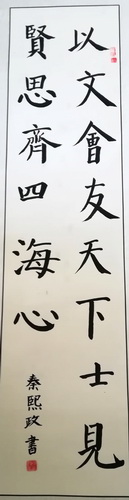 以文會友天下士見
賢思齊四海心
秦熙政書